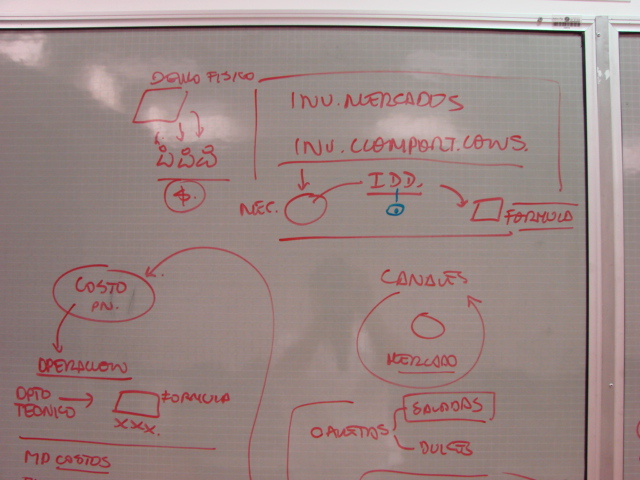 DEMO FISICO
INV. MERCADOS
INV. COMPORT. CONS.
$.
NEC.
IDD.
FORMULA
COSTO
PN.
CANALES
MERCADO
OPERACION
DPTO
TECNICO
FORMULA
XXX.
GALLETAS
SALADAS
DULCES
MP COSTOS